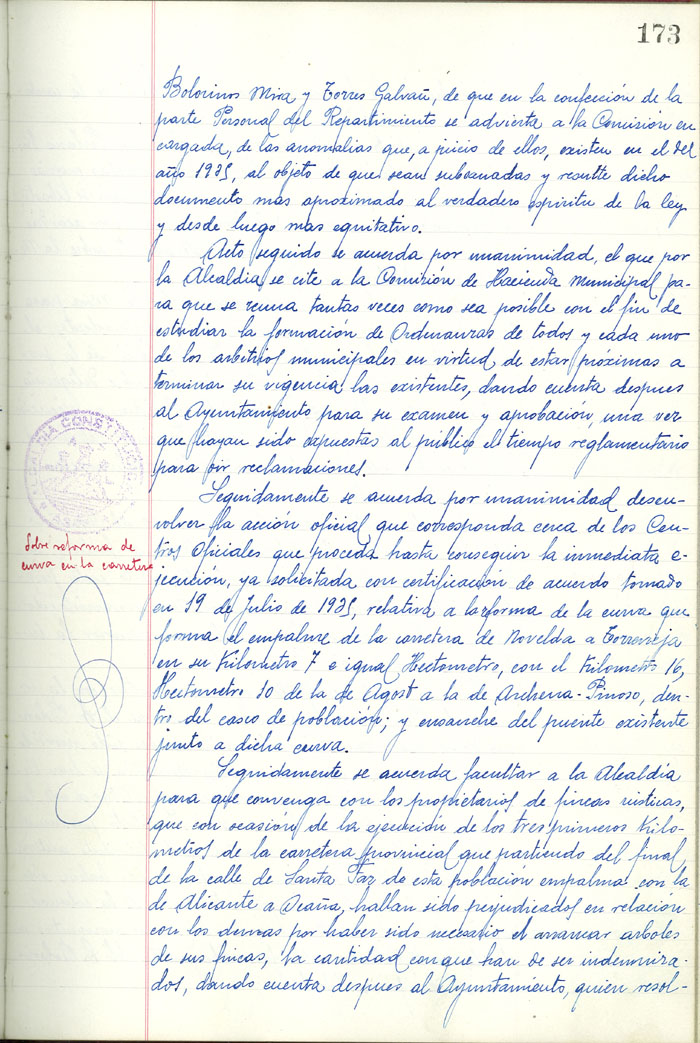 173
Bolorinos Mira y Torres Galvañ, de que en la confección de la
parte Personal del Repartimiento se advierta a la Comision en
cargada, de las anomalias que, a juicio de ellos, existen en el del
año 1925, al objeto de que sean subsanadas y resulte dicho
documento mas aproximado al verdadero espiritu de la ley
y desde luego mas equitativo.
Acto seguido se acuerda por unanimidad, el que por
la Alcaldia se cite a la Comisión de Hacienda Municipal pa-
ra que se reuna tantas veces como sea posible con el fin de
estudiar la formación de Ordenanzas de todos y cada uno
de los arbitrios municipales en virtud de estar próximas a
terminar su vigencia las existentes, dando cuenta despues
al Ayuntamiento para su examen y aprobación, una vez
que hayan sido expuestas al público el tiempo reglamentario
para oir reclamaciones.
Seguidamente se acuerda por unanimidad desen-
volver la acción oficial que corresponda cerca de los Cen-
tros Oficiales que proceda hasta conseguir la inmediata e-
jecución, ya solicitada con certificación de acuerdo tomado
en 19 de Julio de 1925, relativa a la reforma de la curva que
forma el empalme de la carretera de Novelda a Torrevieja
en su Kilometro 7 e igual Hectometro, con el Kilometro 16,
Hectometro 10 de la de Agost a la de Archena-Pinoso, den-
tro del casco de población; y ensanche del puente existente
junto a dicha curva.
Sobre reforma de
curva en la carretera
Seguidamente se acuerda facultar a la Alcaldía
para que convenga con los propietarios de fincas rústicas,
que con ocasión de la ejecución de los tres primeros Kilo-
metros de la carretera provincial que partiendo del final
de la calle de Santa Faz de esta población empalma con la
de Alicante a Ocaña, hallan sido perjudicados en relación
con los demas por haber sido necesario el arrancar arboles
de sus fincas, la cantidad con que han de ser indemniza-
dos, dando cuenta despues al Ayuntamiento, quien resol-